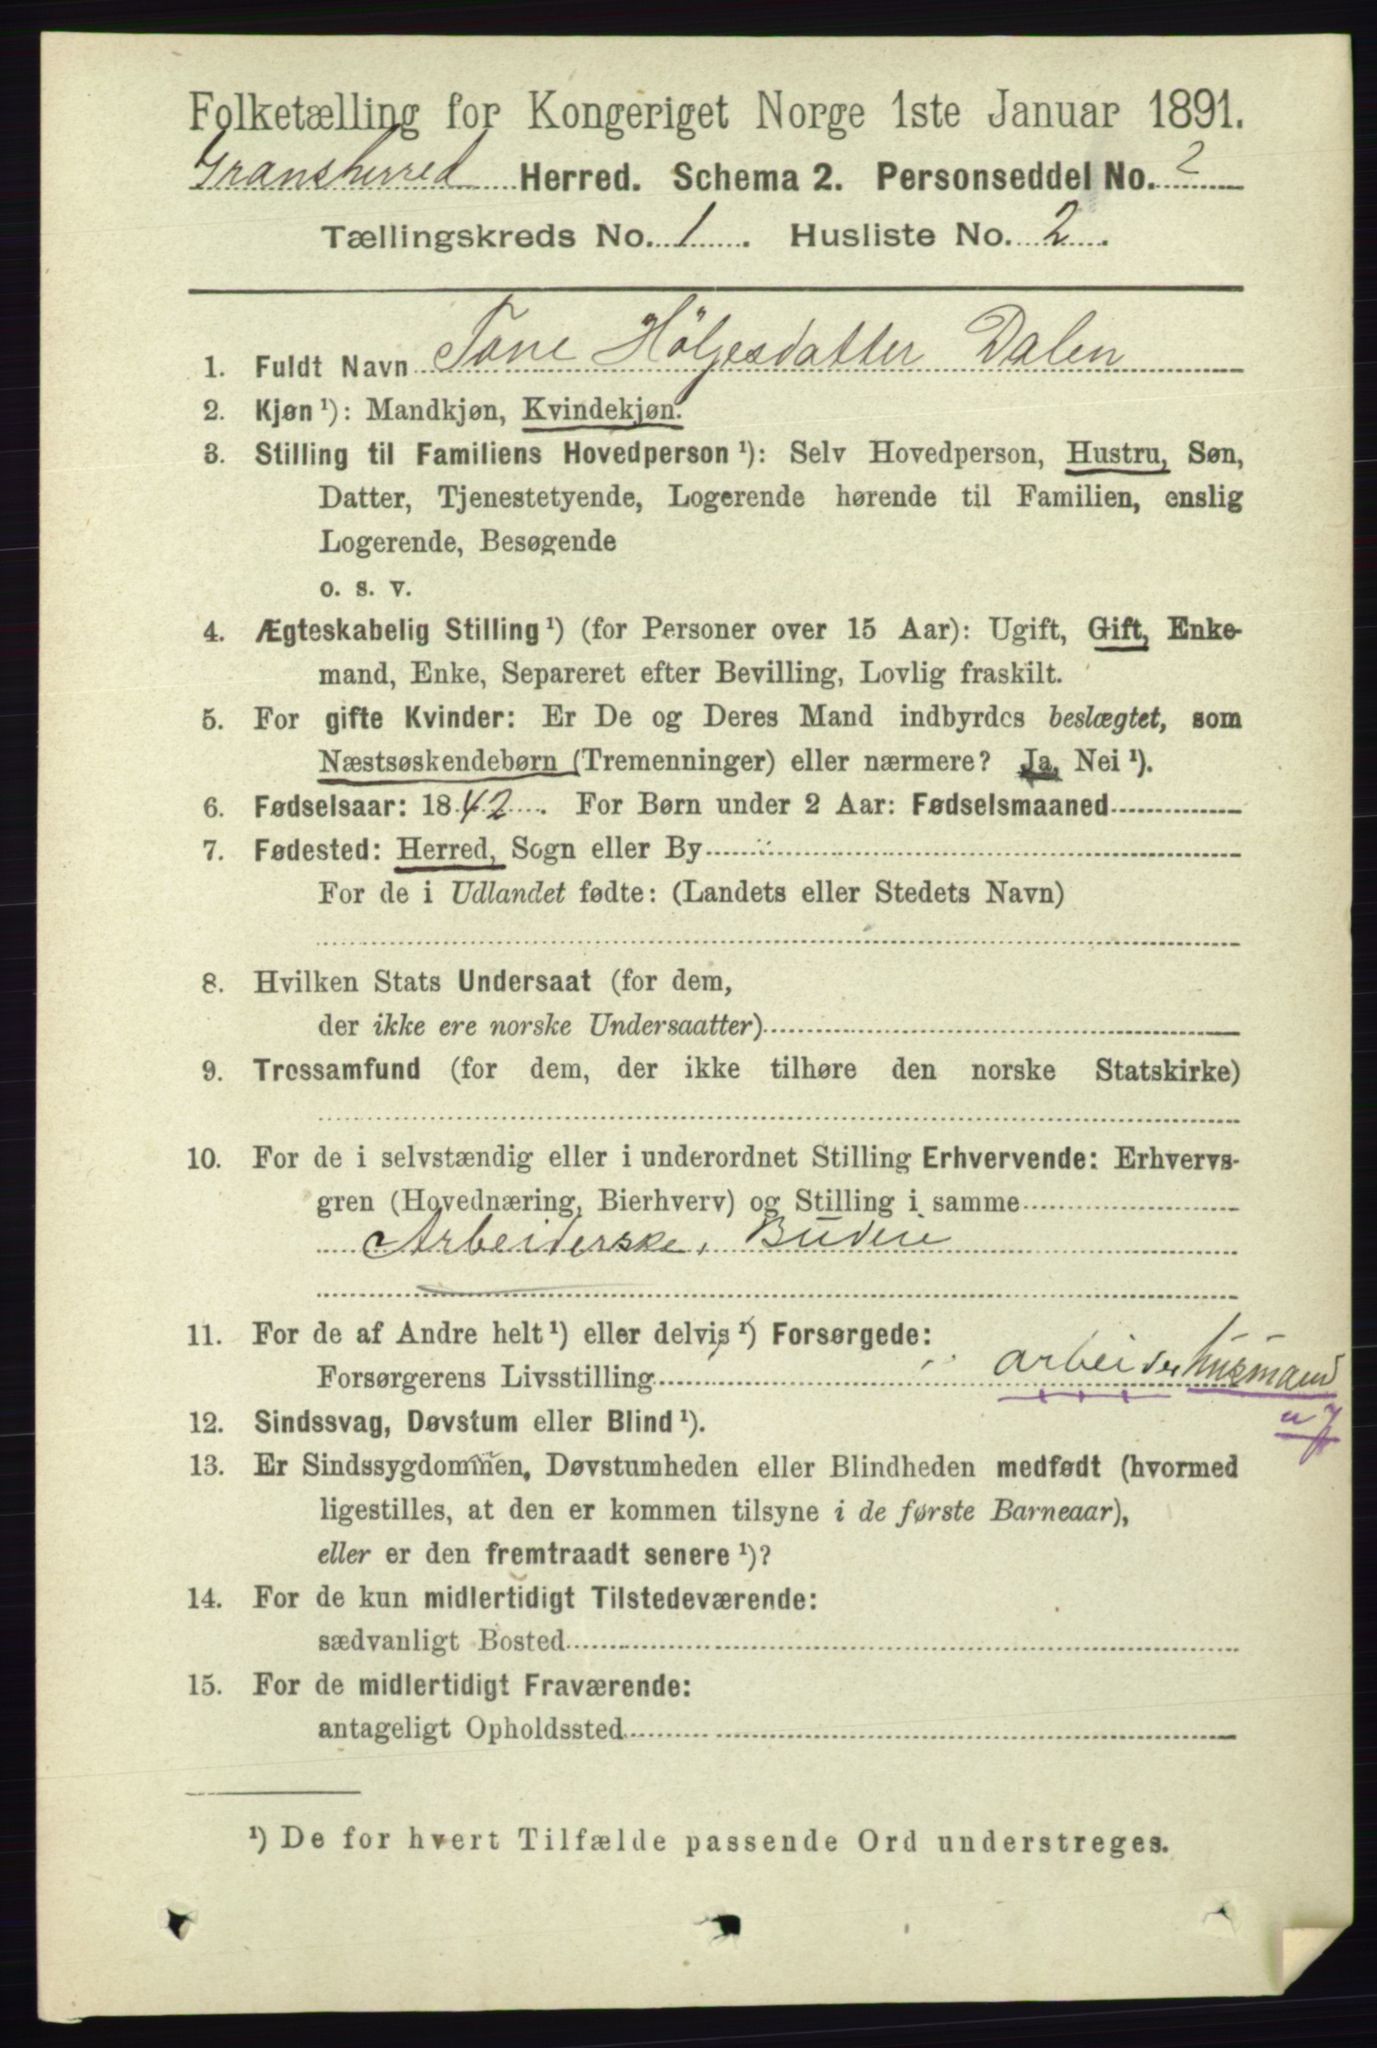 Folketælling for Kongeriget Norge 1ste Januar 1891.
Gransherred Herred. Schema 2. Personseddel No. 2
Tællingskreds No. 1. Husliste No. 2.
1. Fuldt Navn Tone Hølgesdatter Dalen
2. Kjøn ¹): Mandkjøn, Kvindekjøn.
3. Stilling til Familiens Hovedperson ¹): Selv Hovedperson, Hustru, Søn,
Datter, Tjenestetyende, Logerende hørende til Familien, enslig
Logerende, Besøgende
o. s. v.
4. Ægteskabelig Stilling ¹) (for Personer over 15 Aar): Ugift, Gift, Enke-
mand, Enke, Separeret efter Bevilling, Lovlig fraskilt.
5. For gifte Kvinder: Er De og Deres Mand indbyrdes beslægtet, som
Næstsøskendebørn (Tremenninger) eller nærmere? Ja, Nei ¹).
6. Fødselsaar: 1842. For Børn under 2 Aar: Fødselsmaaned
7. Fødested: Herred, Sogn eller By
For de i Udlandet fødte: (Landets eller Stedets Navn)
8. Hvilken Stats Undersaat (for dem,
der ikke ere norske Undersaatter)
9. Trossamfund (for dem, der ikke tilhøre den norske Statskirke)
10. For de i selvstændig eller i underordnet Stilling Erhvervende: Erhvervs-
gren (Hovednæring, Bierhverv) og Stilling i samme
Arbeiderske, Budeie
11. For de af Andre helt ¹) eller delvis ¹) Forsørgede:
Forsørgerens Livsstilling arbeider husmand
12. Sindssvag, Døvstum eller Blind ¹).
13. Er Sindssygdommen, Døvstumheden eller Blindheden medfødt (hvormed
ligestilles, at den er kommen tilsyne i de første Barneaar),
eller er den fremtraadt senere ¹)?
14. For de kun midlertidigt Tilstedeværende:
sædvanligt Bosted
15. For de midlertidigt Fraværende:
antageligt Opholdssted
¹) De for hvert Tilfælde passende Ord understreges.